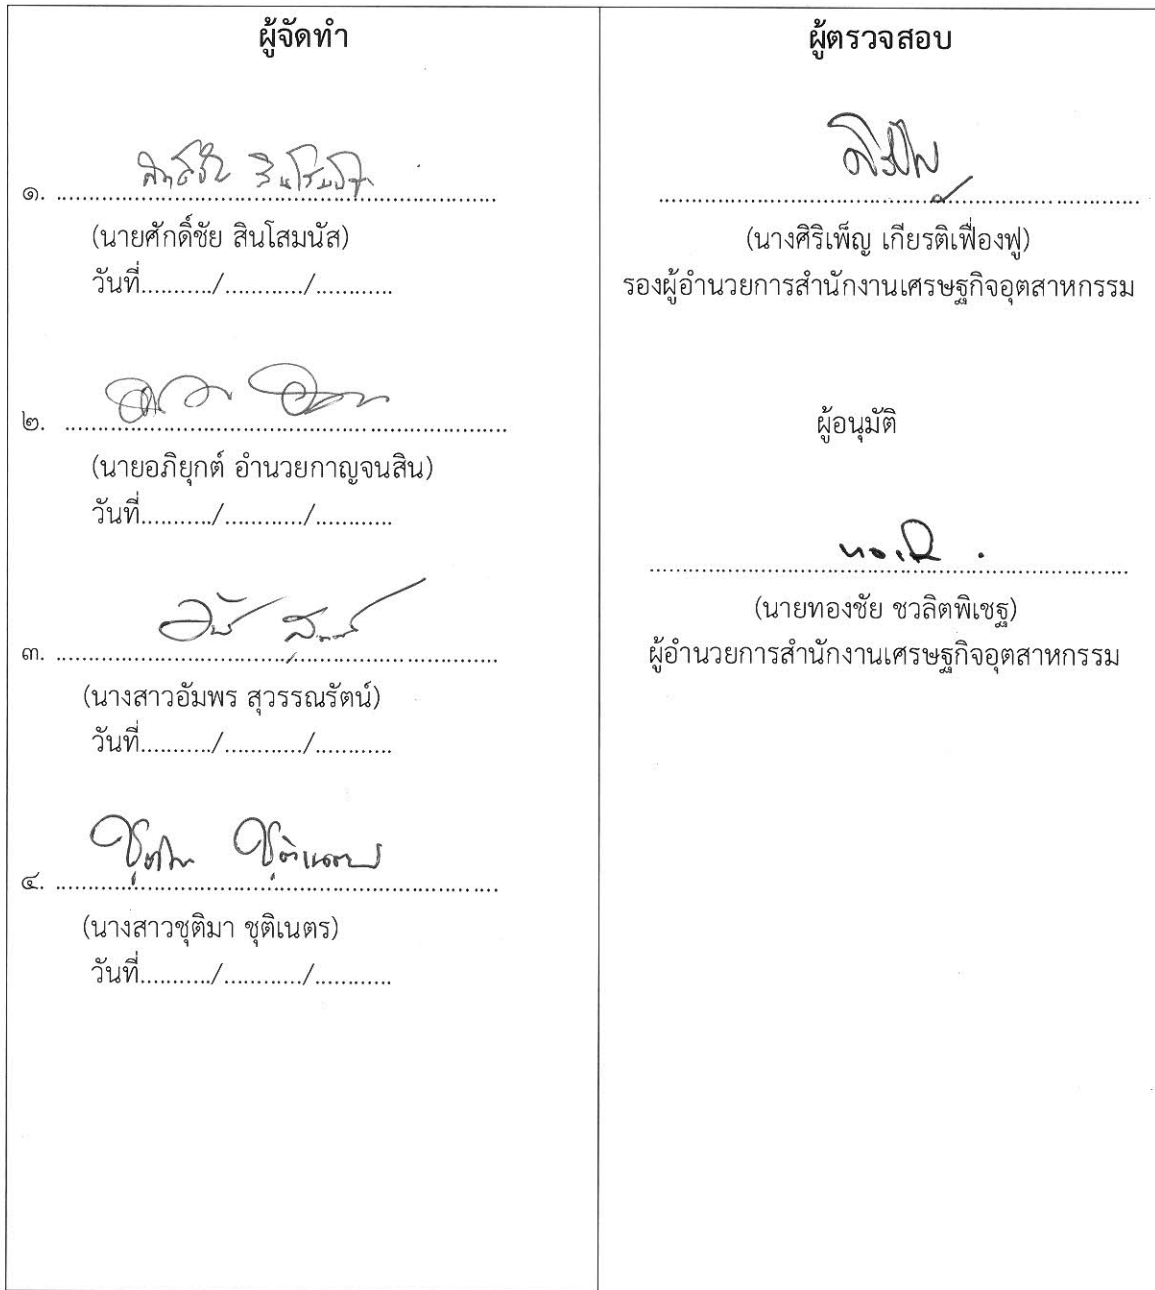 ผู้จัดทำ
๑. ................................................................
(นายศักดิ์ชัย สินโสมนัส)
วันที่.........../.........../...........
๒. ................................................................
(นายอภิยุกต์ อำนวยกาญจนสิน)
วันที่.........../.........../...........
๓. ................................................................
(นางสาวอัมพร สุวรรณรัตน์)
วันที่.........../.........../...........
๔. ................................................................
ชุติมา ชุติเนตร
(นางสาวชุติมา ชุติเนตร)
วันที่.........../.........../...........
ผู้ตรวจสอบ
................................................................
(นางศิริเพ็ญ เกียรติเฟื่องฟู)
รองผู้อำนวยการสำนักงานเศรษฐกิจอุตสาหกรรม
ผู้อนุมัติ
................................................................
(นายทองชัย ชวลิตพิเชฐ)
ผู้อำนวยการสำนักงานเศรษฐกิจอุตสาหกรรม